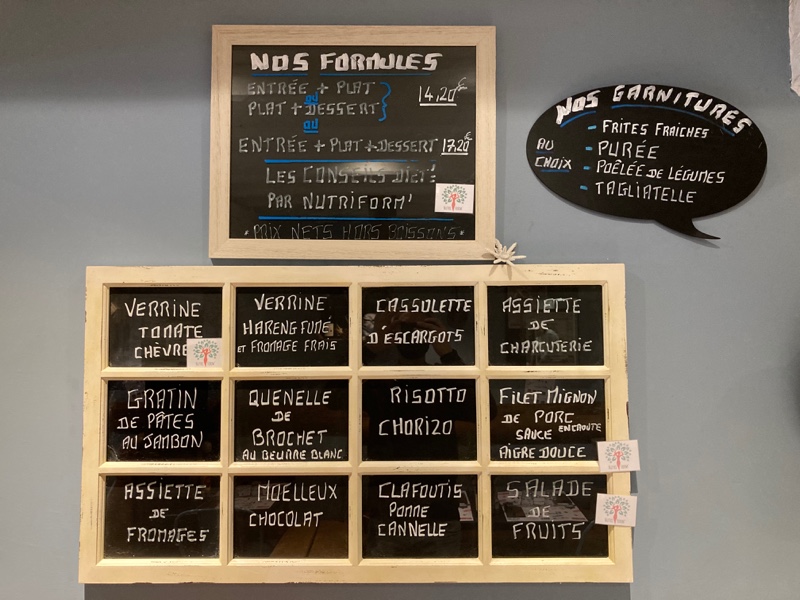 NOS FORMULES
ENTRÉE + PLAT
ou
PLAT + DESSERT
14,20€
ou
ENTRÉE + PLAT + DESSERT 17,20€
LES CONSEILS DIET'
PAR NUTRIFORM'
* PRIX NETS HORS BOISSONS *
NOS GARNITURES
AU CHOIX
- FRITES FRAICHES
- PURÉE
- POÊLÉE DE LÉGUMES
- TAGLIATELLE
VERRINE
TOMATE
CHÈVRE
VERRINE
HARENG FUMÉ
ET FROMAGE FRAIS
CASSOLETTE
D'ESCARGOTS
ASSIETTE
DE
CHARCUTERIE
GRATIN
DE PÂTES
AU JAMBON
QUENELLE
DE
BROCHET
AU BEURRE BLANC
RISOTTO
CHORIZO
FILET MIGNON
DE PORC
SAUCE EN CROUTE
AIGRE DOUCE
ASSIETTE
DE
FROMAGES
MOELLEUX
CHOCOLAT
CLAFOUTIS
POMME
CANNELLE
SALADE
DE
FRUITS